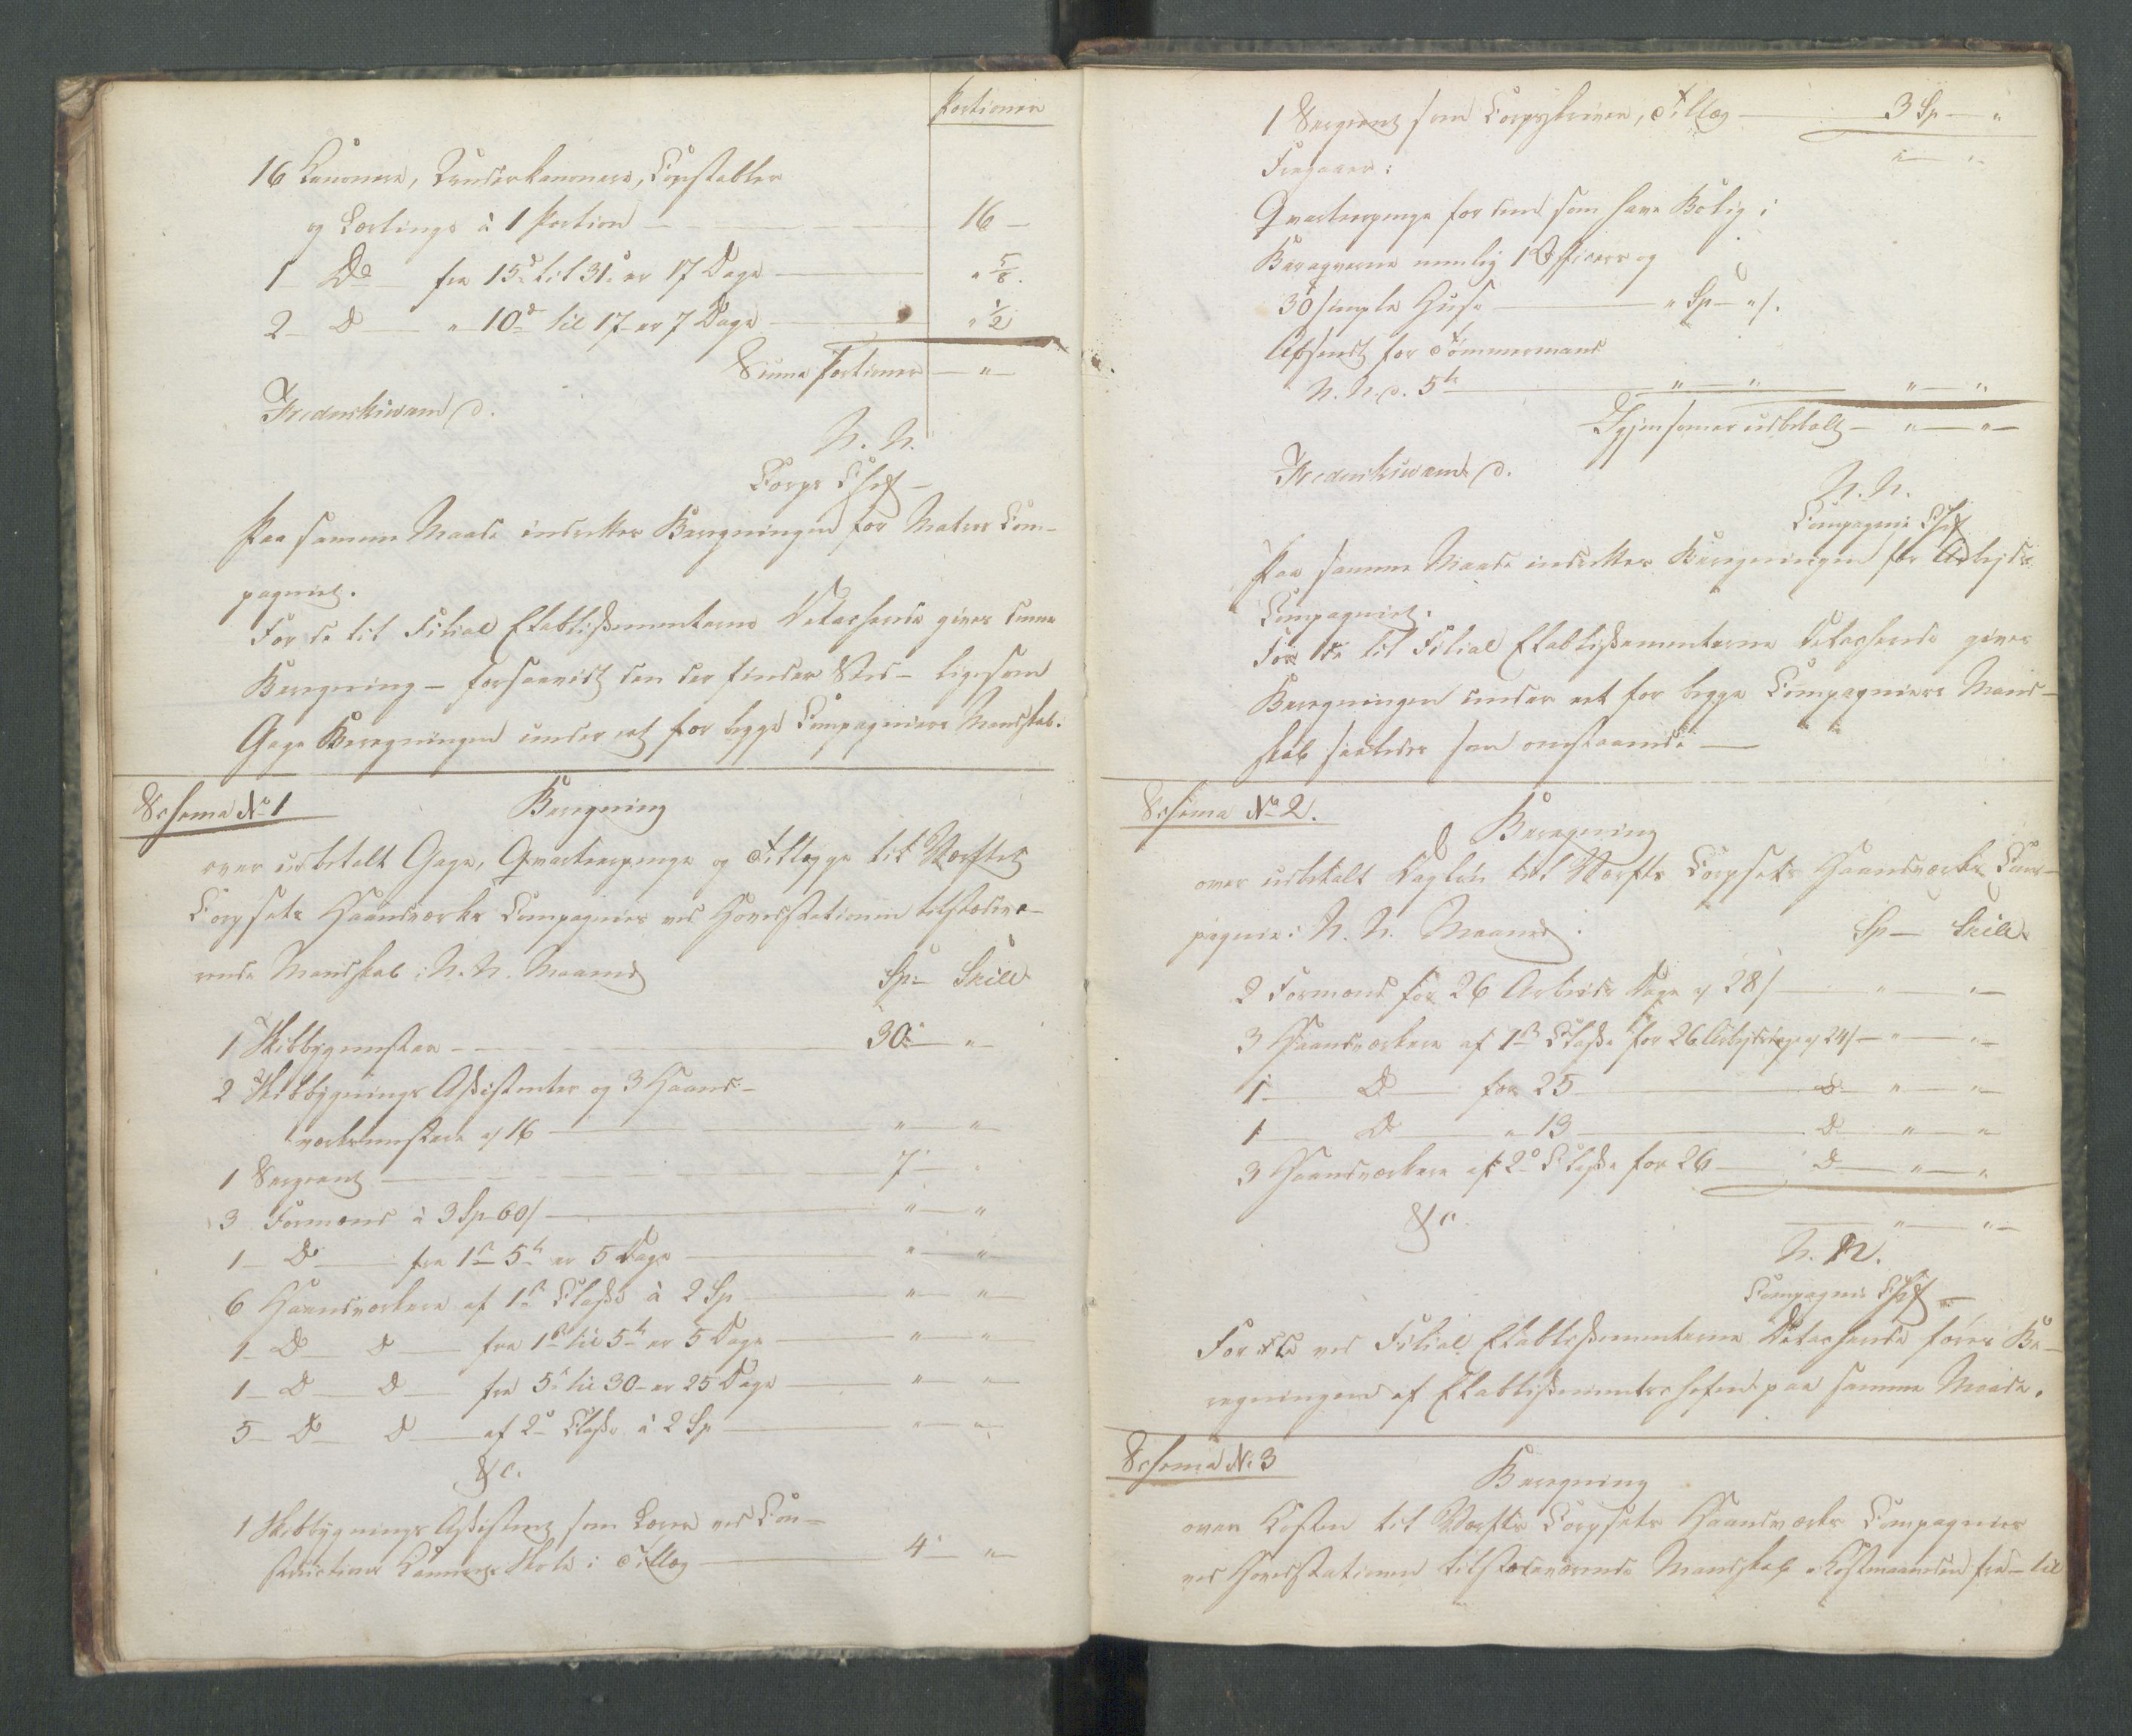 Portioner
16 Canonere, Underkanonere, Constabler
og Lærlinge à 1 Portion — 16 —
1 Do — fra 15de til 31. er 17 Dage — " 5/8.
2 Do — " 10de til 17 er 7 Dage — " 1/2
Summa Portioner — " —
Frederiksværn d.
N. N.
Corps Chef —
Paa samme Maade indrettes Beregningen for Matros Com-
pagniet.
For de til Filial Etablissementerne Detascherede gives denne
Beregning — forsaavidt den der finder Sted — ligesom
Gage Beregningen under eet for begge Compagniers Mandskab.
Schema No 1
Beregning
over udbetalt Gage, Qvarteerpenge og Tillægge til Værfts
Corpsets Haandværks Compagnies ved Hovedstationen tilstedevæ-
rende Mandskab i N. N. Maaned
Sp — Skill
1 Skibbygmester — 30 — "
2 Skibbygnings Assistenter og 3 Haand-
værksmestere à 16 — " — "
1 Sergeant — 7 —
3 Formænd à 3 Sp 60 s — " — "
1 Do — fra 1ste 5te er 5 Dage — " — "
6 Haandværkere af 1ste Classe à 2 Sp — " — "
1 Do Do — fra 1ste til 5te er 5 Dage — " — "
1 Do Do — fra 5te til 30 er 25 Dage — " — "
5 Do Do — af 2den Classe à 2 Sp — " — "
&c.
1 Skibbygnings Assistent som Lærer ved Con-
struktions Skole i Tillæg — 4 — "
1 Sergeant som Corpsskriver, Tillæg — 3 Sp — "
" — "
Fragaaer:
Qvarteerpenge for dem som have Bolig i
Baraqverne nemlig 1 Officeer og
30 simple Huse — " Sp — " s.
Afsendt for Tømmermand
N. N. d. 5te — " — " — " — "
Igjen som er udbetalt — " — " —
Frederiksværn d.
N. N.
Compagnie Chef
Paa samme Maade indrettes Beregningen for Arbejds
Compagniet.
For de til Filial Etablissementerne detascherede gives
Beregningen under eet for begge Compagniers Mand-
skab saaledes som omstaaende —
Schema No 2.
Beregning
over udbetalt Dagløn til Værfts Corpsets Haandværks Com-
pagnie i N. N. Maaned
Sp — Skill.
2 Formænd for 26 Arbeids Dage à 28 s — " — " —
3 Haandværkere af 1ste Classe for 26 Arbejdsdage à 24 s — " — " —
1 — Do — for 25 — Do — " — " —
1 — Do — " 13 — Do — " — "
3 Haandværkere af 2den Classe for 26 — Do — " — "
&c. — " — " —
N. N.
Compagnie Chef —
For de ved Filial Etablissementerne Detascherede føres Be-
regningen af Etablissementschefen paa samme Maade.
Schema No 3
Beregning
over Kosten til Værfts Corpsets Haandværks Compagnies
ved Hovedstationen tilstedeværende Mandskab i Kostmaaneden fra — til